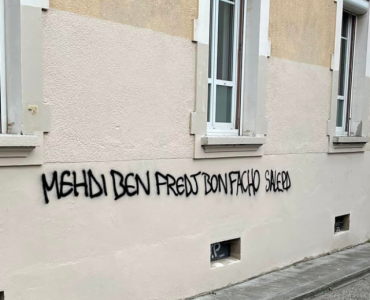 MEHDI BEN FREDJ BON FACHO